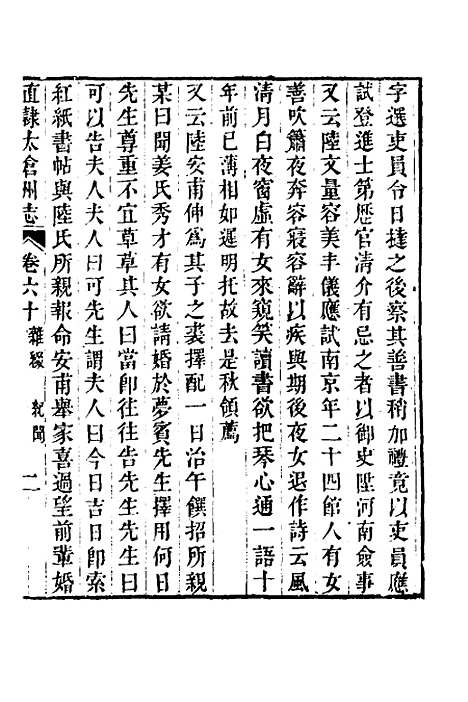 字選吏員令日撻之後察其善書稍加禮竟以吏員應
試登進士第歷官清介有忌之者以御史陞河南僉事
又云陸文量容美丰儀應試南京年二十四館人有女
善吹簫夜奔容寢容辭以疾與期後夜女退作詩云風
淸月白夜窗虛有女來窺笑讀書欲把琴心通一語十
年前已薄相如遲明托故去是秋領薦
又云陸安甫伸爲其子之裘擇配一日治午饌招所親
某曰聞姜氏秀才有女欲請婚於夢賓先生擇用何日
先生尊重不宜草草其人曰當卽往往告先生先生曰
可以告夫人夫人曰可先生謂夫人曰今日吉日卽索
紅紙書帖與陸氏所親報命安甫舉家喜過望前輩婚
直隸太倉州志 卷六十 雜綴 紀聞 二